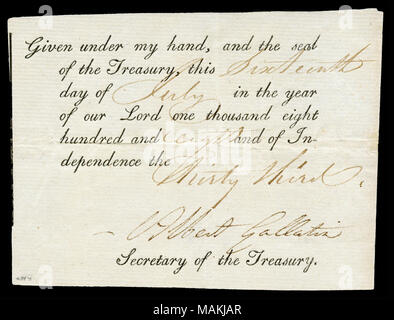 Given under my hand, and the seal
of the Treasury, this Sixteenth
day of July in the year
of our Lord one thousand eight
hundred and eight and of In-
dependence the
Thirty third.
Albert Gallatin
Secretary of the Treasury.
alamy
Image ID: MAKJAR
www.alamy.com